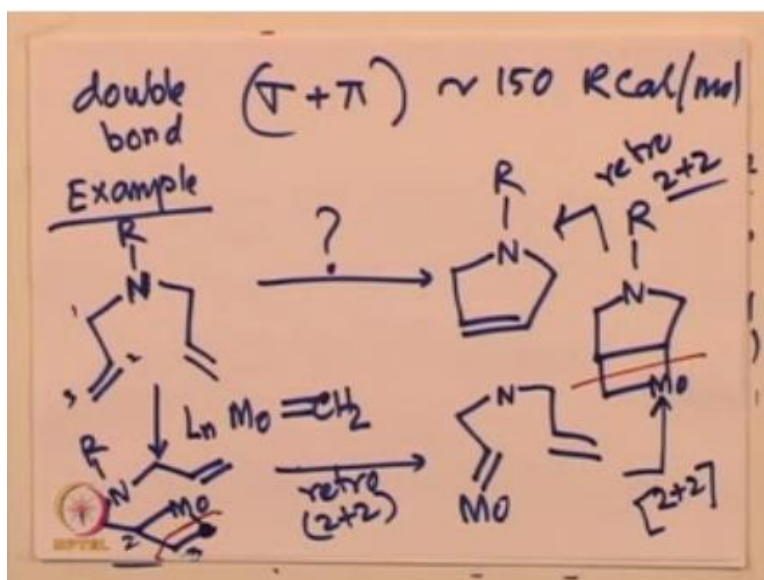 double (σ + π) ~ 150 Kcal/mol
bond
Example
R
N
1
2
3
?
R
N
retro
2+2
R
N
Mo
Ln Mo =CH2
R
N
Mo
2
3
retro
(2+2)
N
Mo
[2+2]
NPTEL